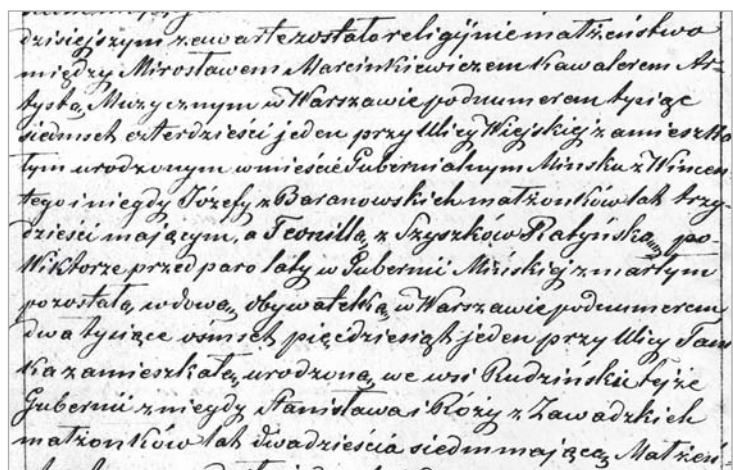 dzisiejszym zawarte zostało religijnie małżeństwo
między Mirosławem Marcinkiewiczem Kawalerem Ar-
tystą Muzycznym w Warszawie pod numerem tysiąc
siedmset czterdzieści jeden przy Ulicy Wiejskiej zamieszka
łym urodzonym w mieście Gubernialnym Mińsku z Wincen
tego i niegdy Józefy z Baranowskich małżonków lat trzy-
dzieści mającym, a Teonillą z Szyszków Ratyńską, po
Wiktorze przed paro laty w Gubernii Mińskiej zmarłym
pozostałą wdową, obywatelką w Warszawie pod numerem
dwa tysiące ośmset pięćdziesiąt jeden przy Ulicy Tam
ka zamieszkałą, urodzoną we wsi Rudzińskie tejże
Gubernii z niegdy Stanisława i Róży z Zawadzkich
małżonków lat dwadzieścia siedm mającą. Małżeń-